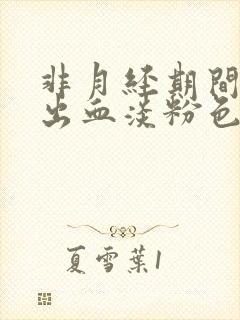 非月经期間
出血淡粉色
夏雪葉1